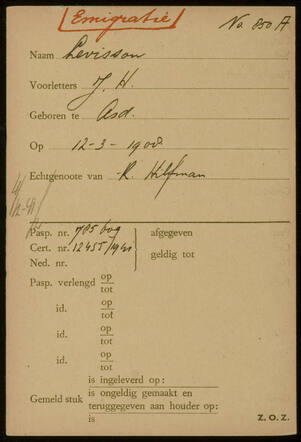 Emigratie No. 850 A
Naam Levisson
Voorletters J. H.
Geboren te Asd.
Op 12-3-1908
Echtgenoote van R. Hilfman
Pasp. nr. 705609 afgegeven
Cert. nr. 12455/1941 geldig tot
Ned. nr.
Pasp. verlengd op
tot
id. op
tot
id. op
tot
id. op
tot
is ingeleverd op:
Gemeld stuk is ongeldig gemaakt en
teruggegeven aan houder op:
is Z.O.Z.